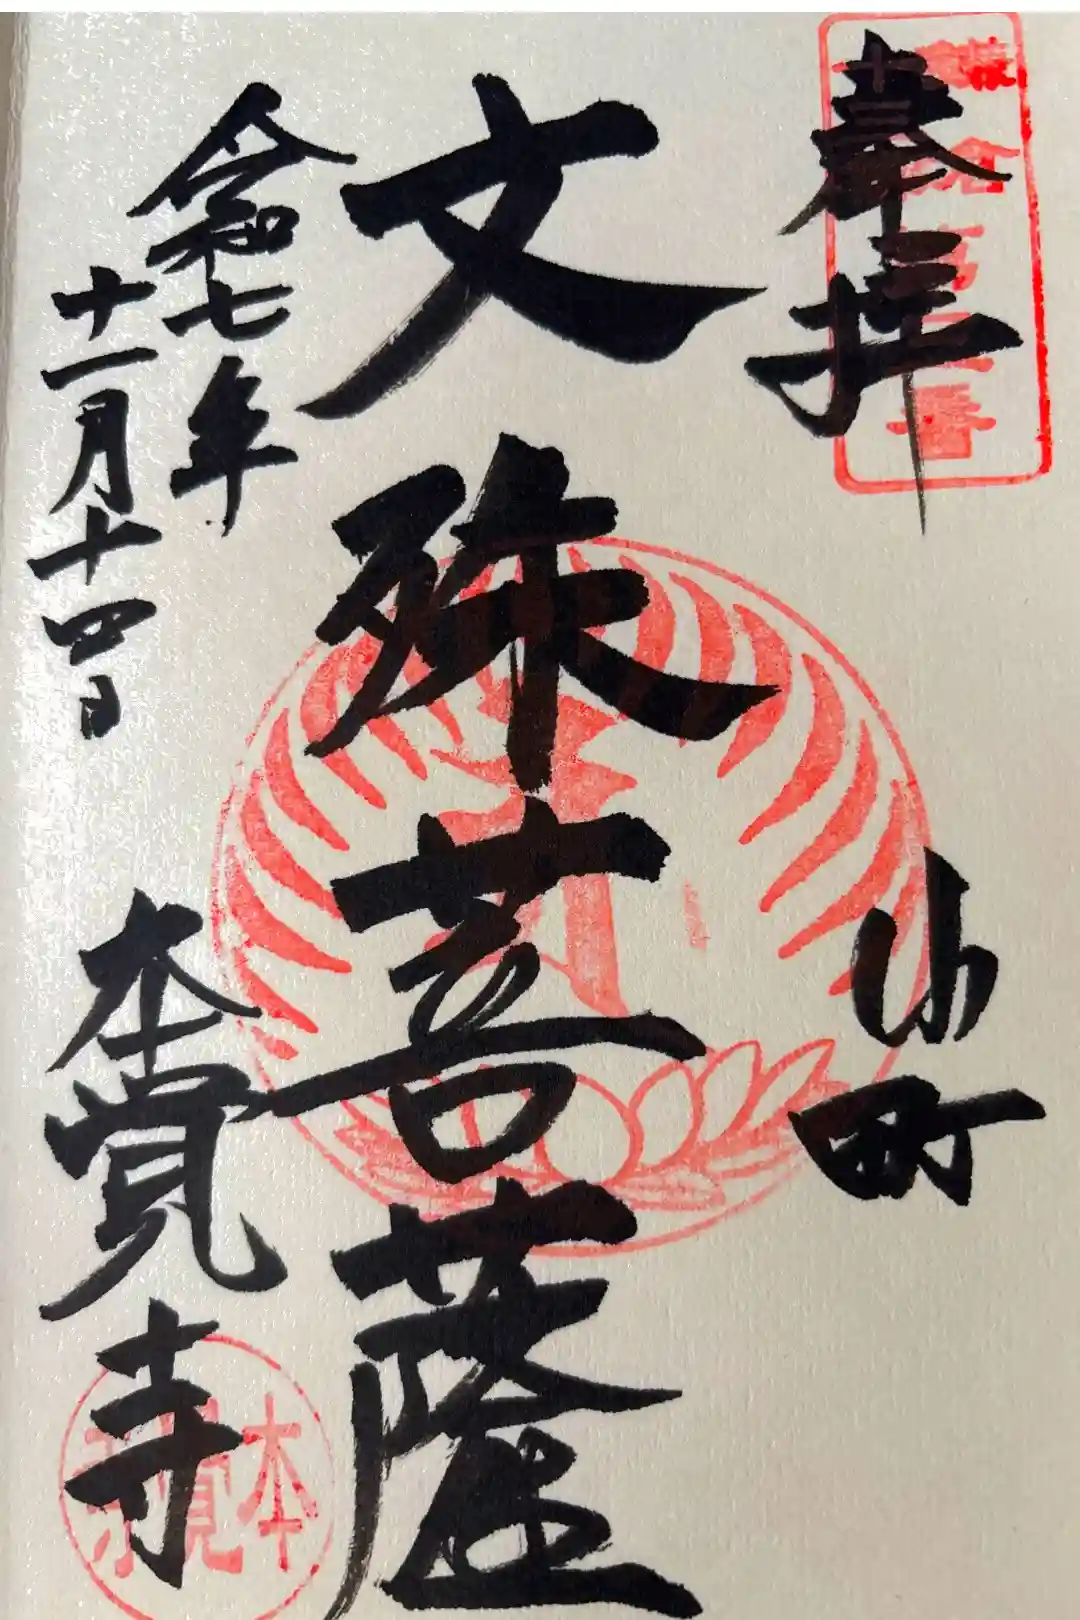 奉拝
小町
文殊菩薩
令和七年
十一月十四日
本覚寺
本覚寺